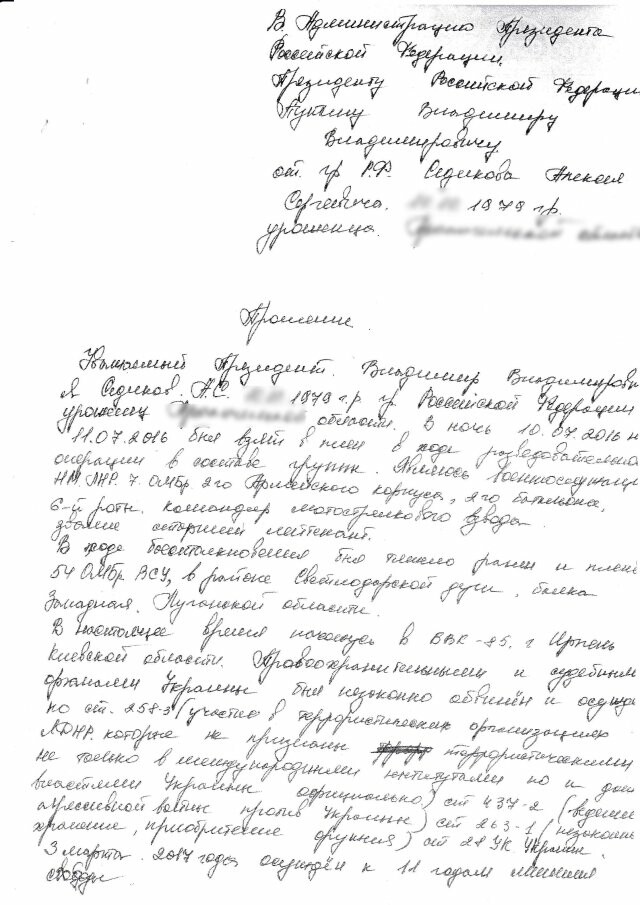 В Администрацию Президента
Российской Федерации.
Президенту Российской Федераци
Путину Владимиру
Владимировичу
от. гр Р.Ф. Седикова Алексея
Сергеевича. 1979 г.р.
урожинца.
Прошение.
Уважаемый Президент. Владимир Владимирович
Я Седиков. А.С. 1979 г.р гр. Российской Федерации
урожинец области. В ночь 10.07.2016 н
11.07.2016 был взят в плен в ходе разведовательной
операции в составе группы. Являюсь военнослужащи
НМ ЛНР. 7. ОМбр 2го Армейского корпуса, 2го батальона,
6-й роты. командир мотострелкового взвода.
звание старший лейтенант.
В ходе боестолкновения был тяжело ранен и плене
54 ОМбр ВСУ, в районе Светлодарской дуги, балка
Западная. Луганской области.
В настоящее время нахожусь в ВВК-85. г Ирпень
Киевской области. Правоохранительными и судебным
органами Украины был незаконно обвинён и осужд
по ст. 258-3 (участие в террористических организациях
ЛДНР. которые не признаны террористическими
не только в международными институтами но и даж
властями Украины официально) ст 437-2 (ведение
агрессивной войны против Украины) ст 263-1 (незаконн
хранение, приобритение оружия) ст 28 УК Украин.
3 марта. 2017 года осуждён к 11 годам лишения
свободы